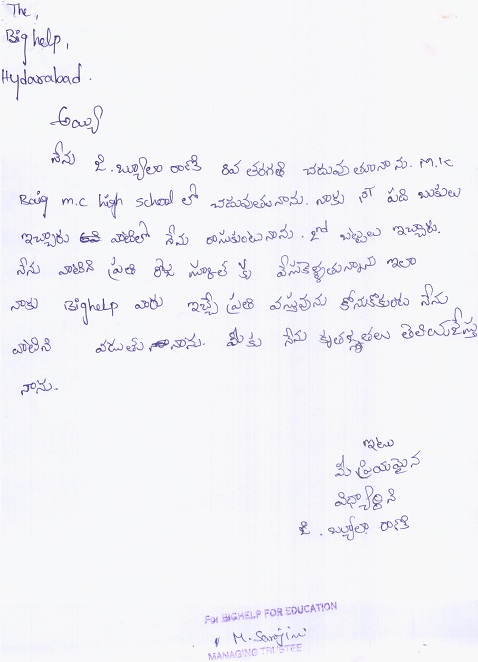 The,
Bighelp,
Hydarabad.
అయ్యా
నేను జి. బ్యూలా రాణి 8వ తరగతి చదువుతూనాను. M.K
Baig m.c high school లో చదువుతునాను. నాకు 1st పది బుకులు
ఇచ్చారు వాటిలో నేను రాసుకుంటునాను. బట్టలు ఇచ్చారు.
నేను వాటిని ప్రతి రోజు స్కూల్ కు వేసుకెళ్ళుతున్నాను ఇలా
నాకు Bighelp వారు ఇచ్చే ప్రతి వస్తువును కోనుకోకుంట నేను
వాటిని వడుతు నాను. మీకు నేను కృతజ్ఞతలు తెలియజేస్తు
నాను.
ఇటు
మీ ప్రియమైన
విధ్యార్థిని
జి. బ్యూలా రాణి
For BIGHELP FOR EDUCATION
M. Sarojini
MANAGING TRUSTEE